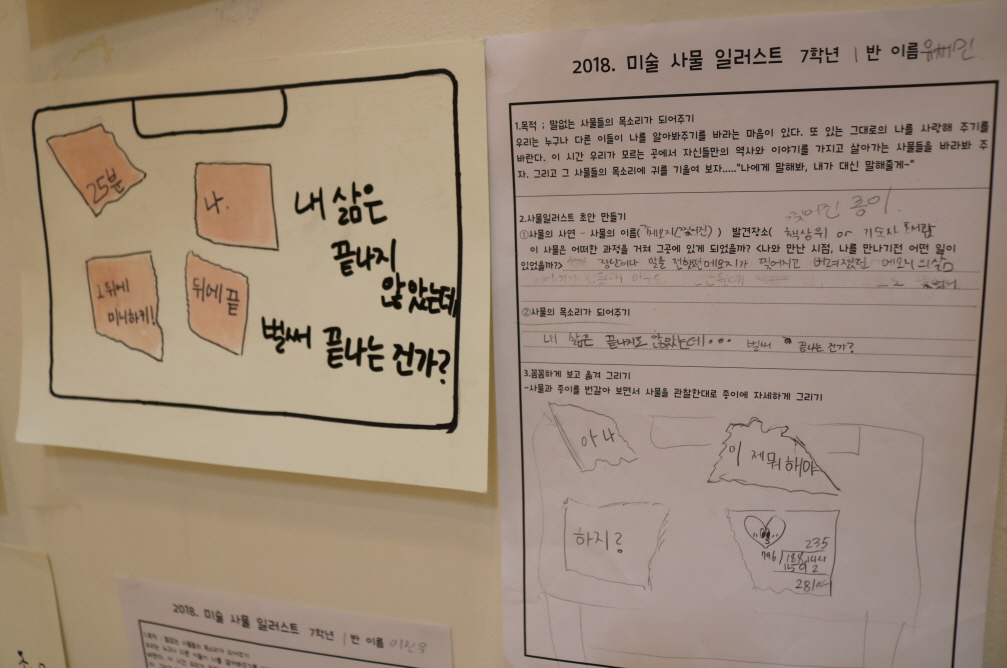 25분
나.
그뒤에
미니하키!
뒤에 끝
내 삶은
끝나지
않았는데
벌써 끝나는 건가?
2018. 미술 사물 일러스트 7학년 1반 이름
1.목적 ; 말없는 사물들의 목소리가 되어주기
우리는 누구나 다른 이들이 나를 알아봐주기를 바라는 마음이 있다. 또 있는 그대로의 나를 사랑해 주기를
바란다. 이 시간 우리가 모르는 곳에서 자신들만의 역사와 이야기를 가지고 살아가는 사물들을 바라봐 주
자. 그리고 그 사물들의 목소리에 귀를 기울여 보자....."나에게 말해봐, 내가 대신 말해줄게~"
찢어진 종이.
2.사물일러스트 초안 만들기
①사물의 사연 - 사물의 이름( 메모지/찢어진 ) 발견장소( 책상위 or 기숙사 서랍
이 사물은 어떠한 과정을 거쳐 그곳에 있게 되었을까? <나와 만난 시점, 나를 만나기전 어떤 일이
있었을까?> 장난이나 말을 전했던 메모지가 찢어지고 버려졌던 메모지의 삶
②사물의 목소리가 되어주기
내 삶은 끝나지도 않았는데... 벌써 끝나는 건가?
3.꼼꼼하게 보고 옮겨 그리기
-사물과 종이를 번갈아 보면서 사물을 관찰한대로 종이에 자세하게 그리기
아 나
이제 뭐 해야
하지?
235
796
1592
2018. 미술 사물 일러스트 7학년 1반 이름
1.목적 ; 말없는 사물들의 목소리가 되어주기